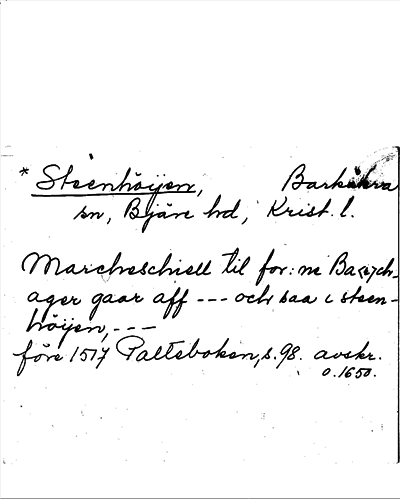 * Steenhöijen, Barkåkra
sn, Bjäre hd, Krist. l.
Marcheschiell til for: ne Ba(r)ch-
ager gaar aff --- och saa i steen-
höijen, ---
före 1517 Palteboken, s. 98. avskr.
o. 1650.